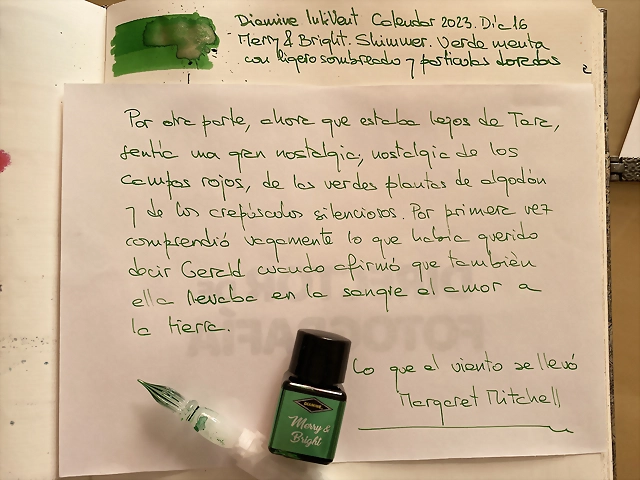 Diamine InkVent Calendar 2023. Día 16
Merry & Bright. Shimmer. Verde menta
con ligero sombreado y partículas doradas
Por otra parte, ahora que estaba lejos de Tara,
sentía una gran nostalgia; nostalgia de los
campos rojos, de las verdes plantas de algodón
y de los crepúsculos silenciosos. Por primera vez
comprendió vagamente lo que había querido
decir Gerald cuando afirmó que también
ella llevaba en la sangre el amor a
la tierra.
FOTOGRAFÍA
Lo que el viento se llevó
Margaret Mitchell
DIAMINE
Merry &
Bright